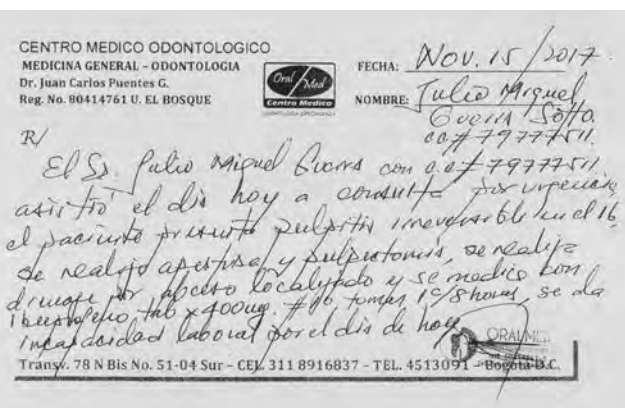 CENTRO MEDICO ODONTOLOGICO
MEDICINA GENERAL – ODONTOLOGIA
Dr. Juan Carlos Puentes G.
Reg. No. 80414761 U. EL BOSQUE
Oral Med
Centro Medico
FECHA: Nov. 15/2017.
NOMBRE: Julio Miguel
Guerra Sotto.
cc # 79777511.
R/
El Sr. Julio Miguel Guerra con c.c # 79777511
asistió el dia hoy a consulta por urgencia,
el paciente presenta pulpitis irreversible en el 16,
se realizo apertura y pulpectomia, se realiza
drenaje por abceso localizado y se medica con
Ibuprofeno tab x 400mg. #10 tomar 1c/8 horas, se da
incapacidad laboral por el dia de hoy
ORALMED
Transv. 78 N Bis No. 51-04 Sur – CEL. 311 8916837 – TEL. 4513091 – Bogotá D.C.